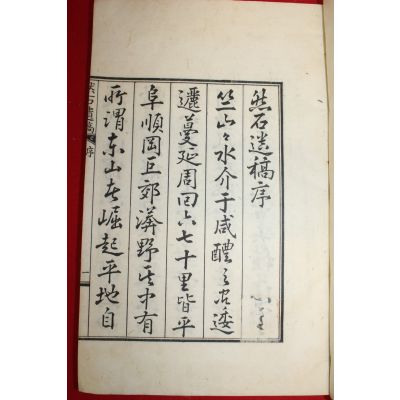 然石遺稿序
竺山々水介于咸醴之逶
邐蔓延周回六七十里皆平
阜順岡巨郊漭野其中有
所謂東山者崛起平地自
然石遺稿 序 一